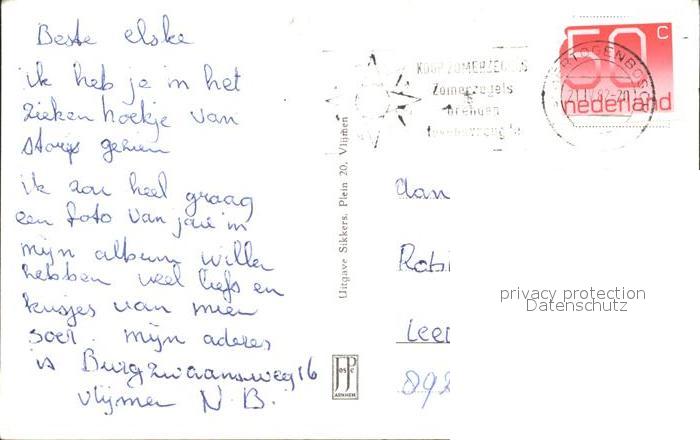 Beste elske
ik heb je in het
zieken hoekje van
story gezien
ik zou heel graag
een foto van jou in
mijn album willen
hebben veel liefs en
kusjes van mien
mijn adres
is Burg zwaansweg 16
vlijmen N.B.
Uitgave Sikkers. Plein 20, Vlijmen
JosPé
ARNHEM
KOOP ZOMERZEGELS
Zomerzegels
brengen
HERTOGENBOSCH
50 c
nederland
aan
Robi
Leer
892
privacy protection
Datenschutz